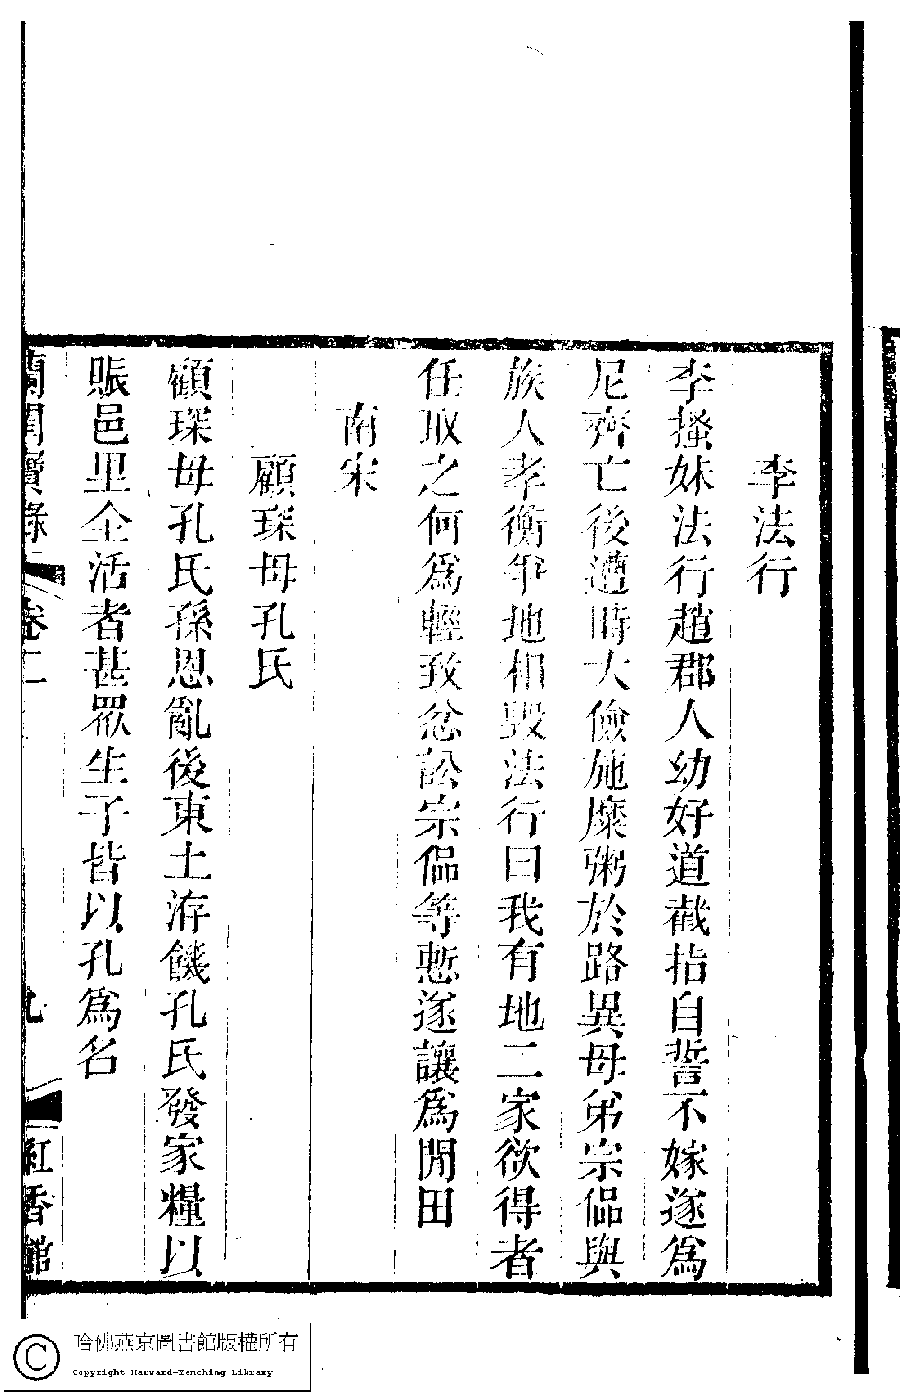 李法行
李搔妹法行趙郡人幼好道截指自誓不嫁遂為
尼齊亡後遭時大儉施糜粥於路異母弟宗偘與
族人孝衡爭地相毀法行曰我有地二家欲得者
任取之何為輕致忿訟宗偘等慙遂讓為閒田
南宋
顧琛母孔氏
顧琛母孔氏孫恩亂後東土洊饑孔氏發家糧以
賑邑里全活者甚眾生子皆以孔為名
蘭閨寶錄 卷二 九 紅香館
哈佛燕京圖書館版權所有
Copyright Harvard-Yenching Library